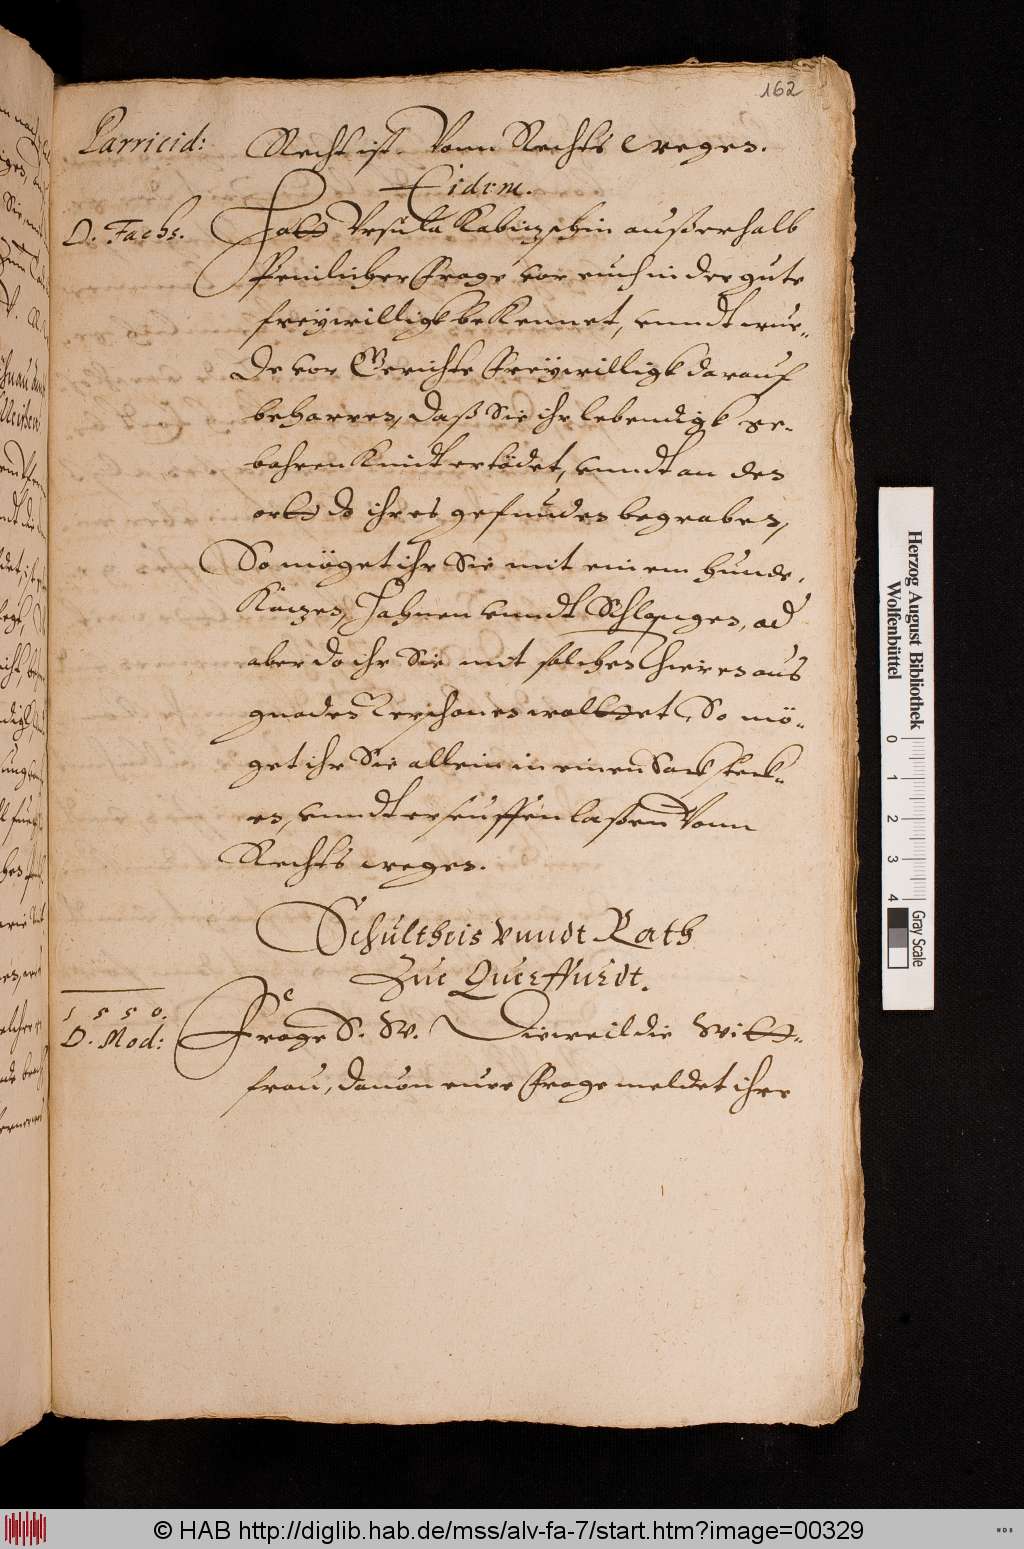 162
Parricid:
Recht ist. Vonn Rechts weges.
Eidem.
D. Fachs.
Hatt Vrsula Kabiczschin außerhalb
Peinlicher Frage vor euch in der gute
freywilligk bekennet, vnndt wur„
de vor Gerichte Freÿwilligk darauf
beharren, daß Sie ihr lebendigk ge-
bohren Kindt ertödet, vnndt an den
ortt do ihr es gefunden begraben,
So möget ihr Sie mit einem hunde,
Katzen, Hahnen vnndt Schlangen, od
aber do ihr Sie mit solchen Thieren aus
gnaden verschonen wolttet, So mö-
get ihr Sie allein in einen Sack steck-
en, vnndt erseuffen laßen Vonn
Rechts weges.
Schültheis vnndt Rath
Zue Querffurdt.
1550.
D. Mod:
Frage S. W. Dieweil die Witt-
frau, dauon eure Frage meldet ihre
Herzog August Bibliothek
Wolfenbüttel
0 1 2 3 4
Gray Scale
© HAB http://diglib.hab.de/mss/alv-fa-7/start.htm?image=00329